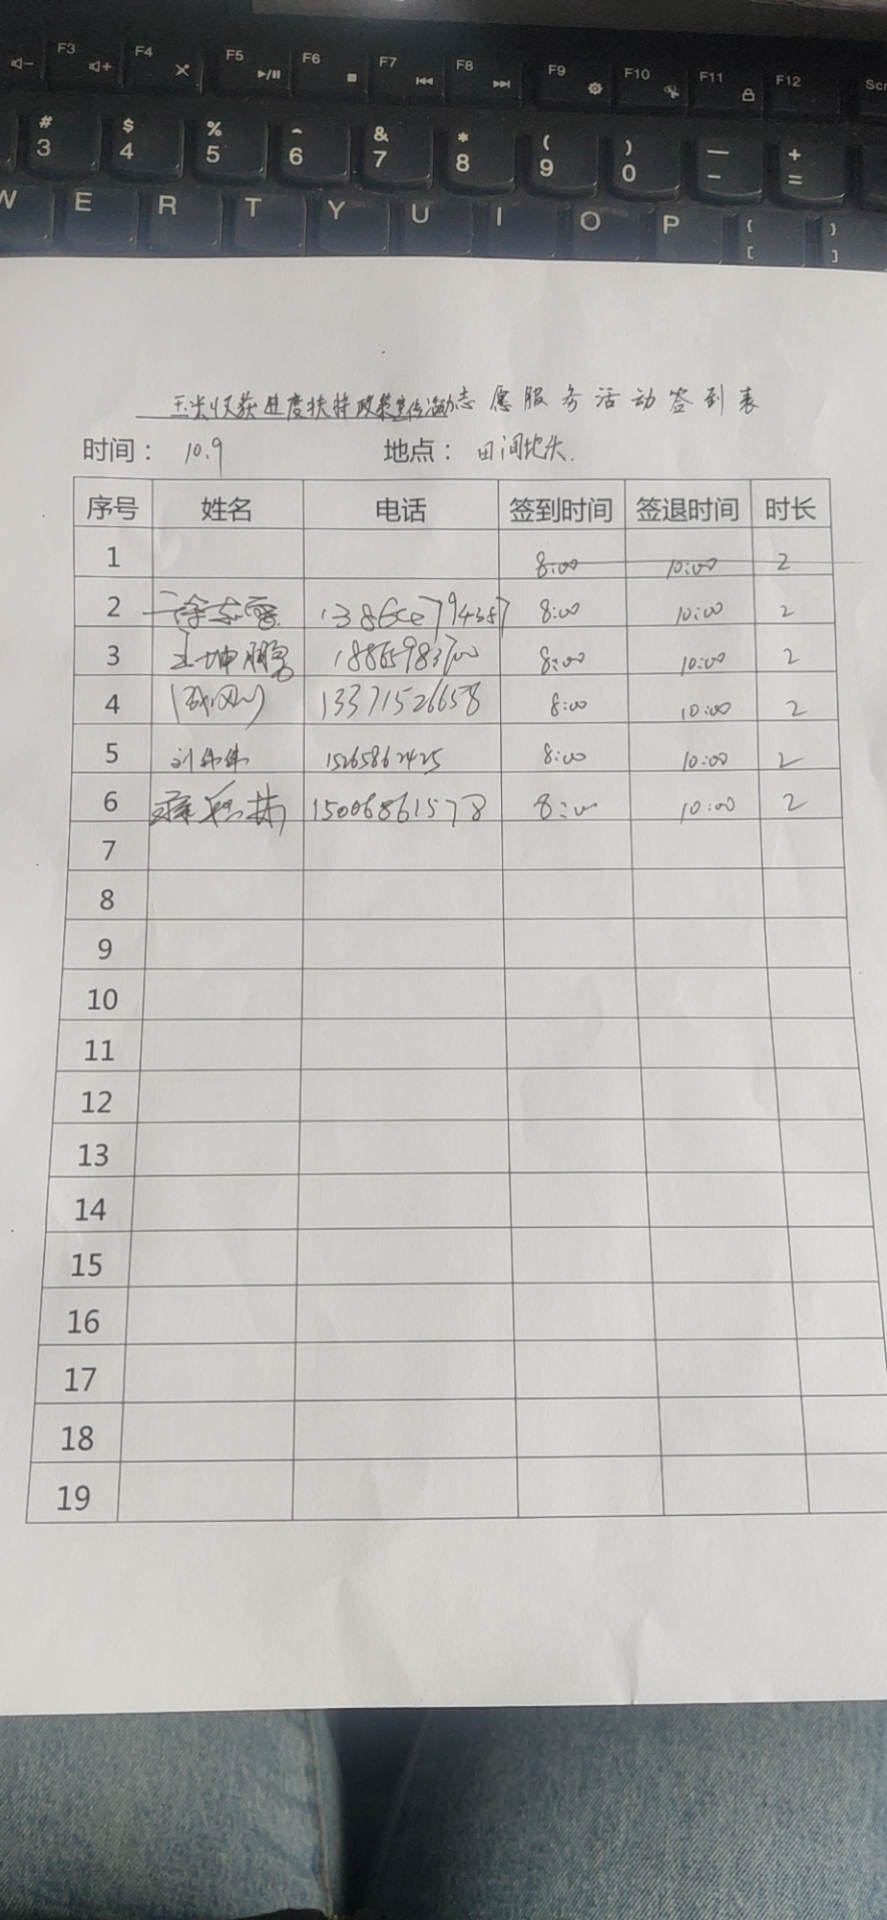 F3 F4 F5 F6 F7 F8 F9 F10 F11 F12 Scr
# $ % ^ & * ( ) — +
3 4 5 6 7 8 9 0 - =
W E R T Y U I O P { }
[ ]
玉米收获进度扶持政策宣传活动志愿服务活动签到表
时间： 10.9 地点： 田间地头.
序号 姓名 电话 签到时间 签退时间 时长
1 8:00 10:00 2
2 8:00 10:00 2
3 王坤鹏 8:00 10:00 2
4 13371526658 8:00 10:00 2
5 刘伟伟 15265862425 8:00 10:00 2
6 15006861578 8:00 10:00 2
7
8
9
10
11
12
13
14
15
16
17
18
19